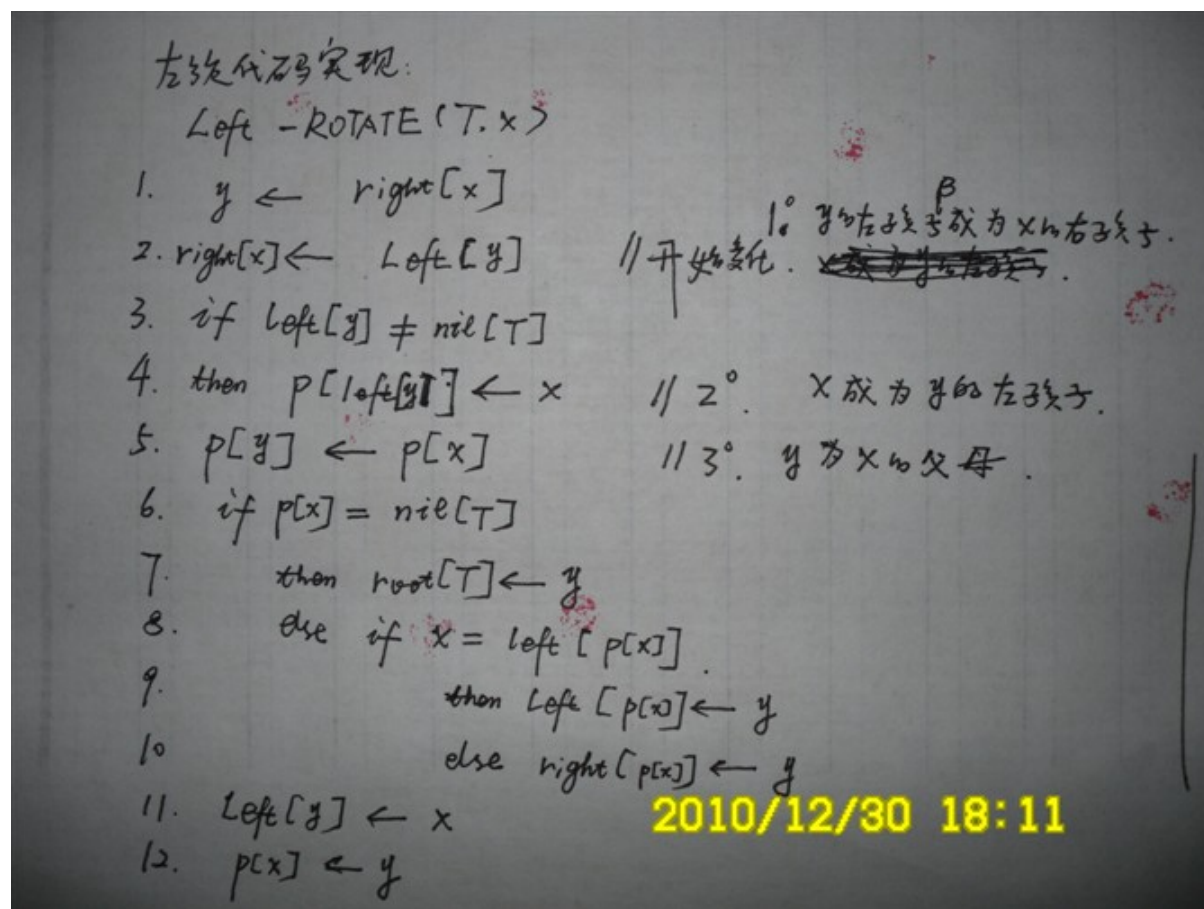 左旋代码实现:
Left -ROTATE(T.x)
1. y ← right[x]
β
2. right[x]← Left[y] //开始变化. 1°. y的左孩子成为x的右孩子.
3. if left[y] ≠ nil[T]
4. then p[left[y]] ← x //2°. x成为y的左孩子.
5. p[y] ← p[x] //3°. y为x的父母.
6. if p[x] = nil[T]
7. then root[T]← y
8. else if x = left [p[x]].
9. then Left [p[x]]← y
10 else right[p[x]] ← y
11. Left[y] ← x
2010/12/30 18:11
12. p[x] ← y